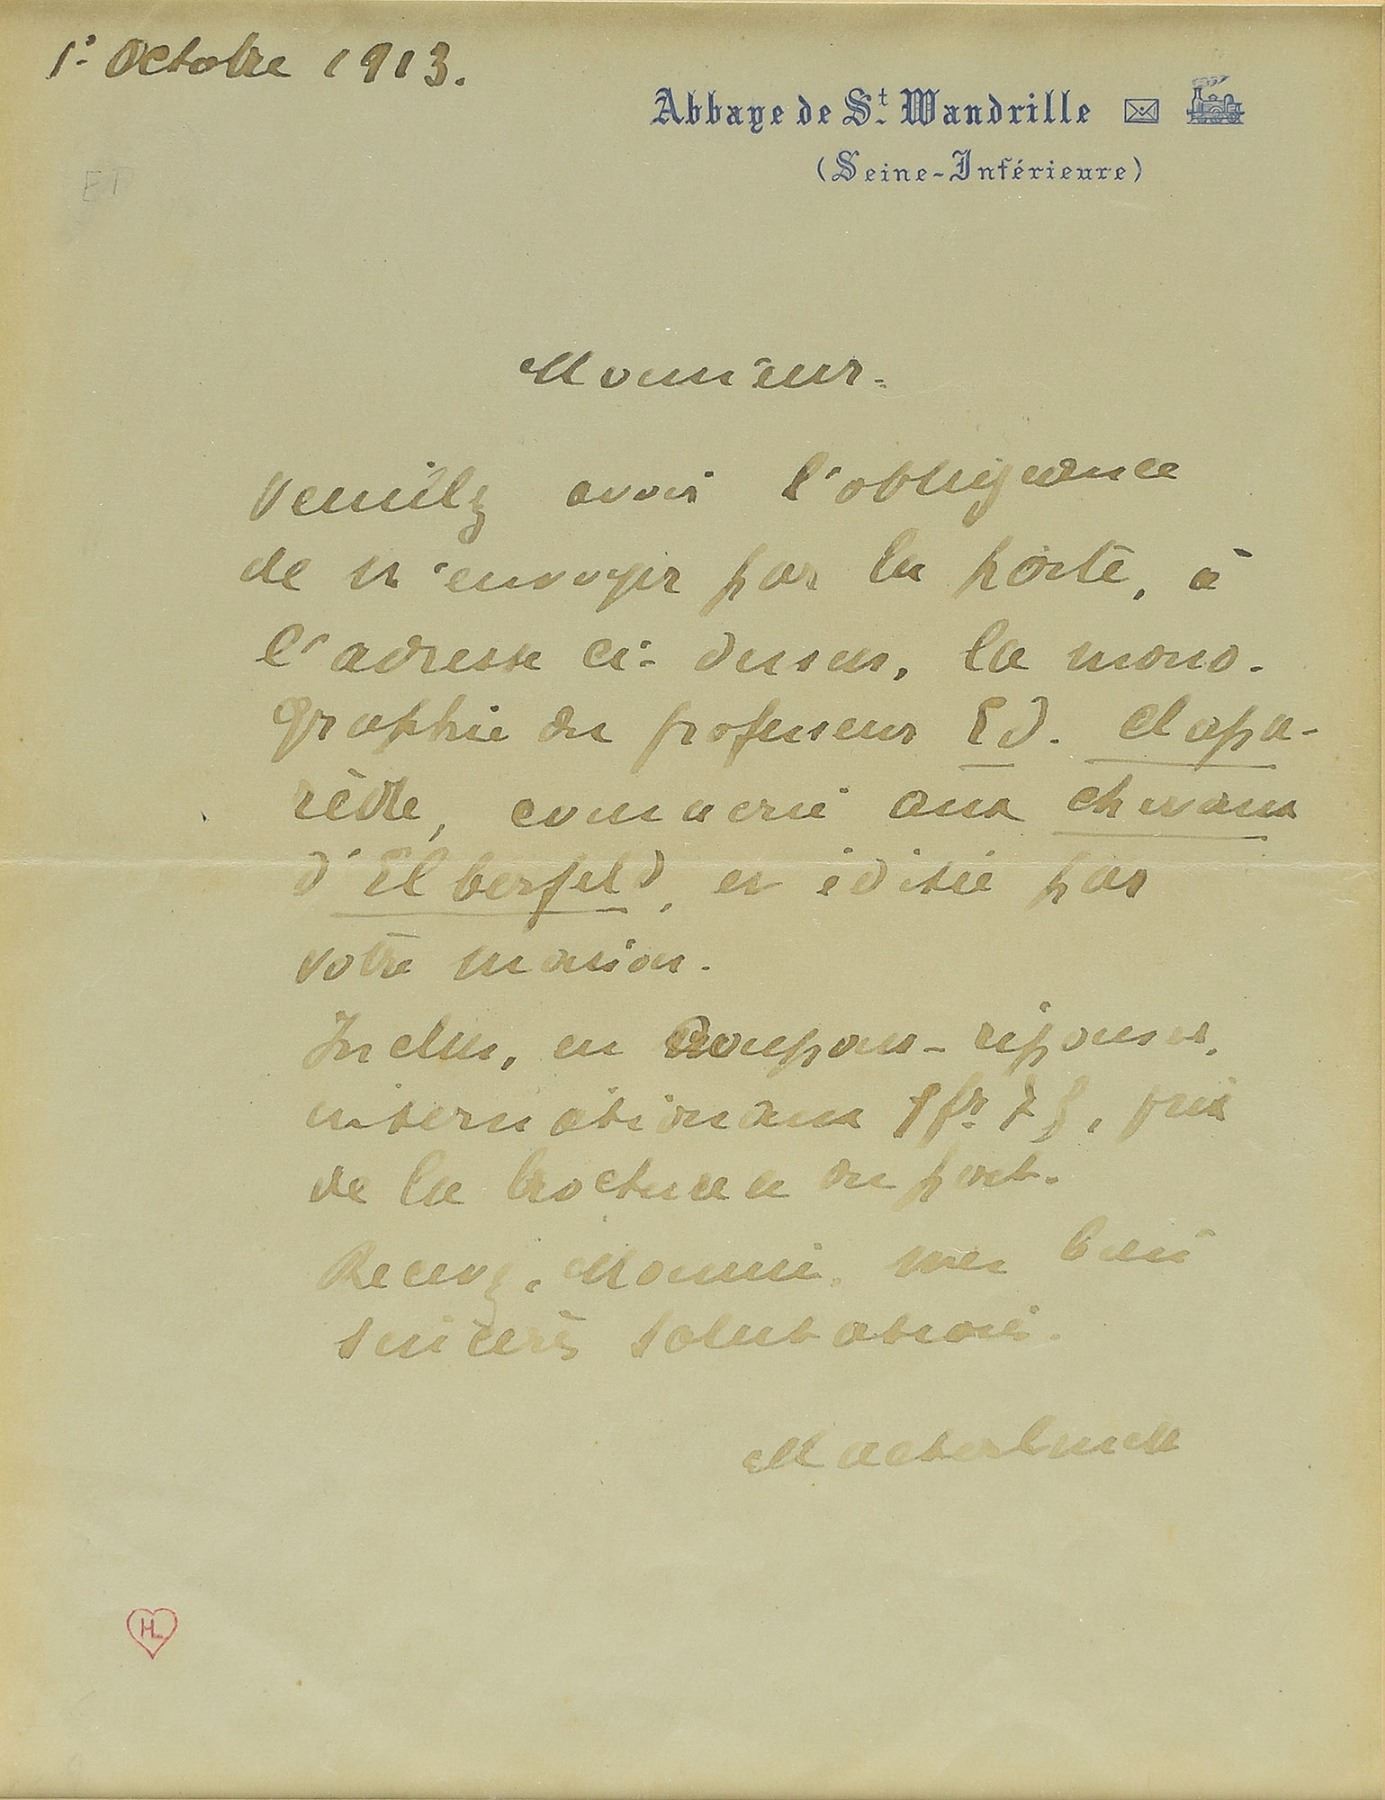 1º Octobre 1913.
Abbaye de St. Wandrille
(Seine-Inférieure)
Monsieur.
Veuillez avoir l'obligeance
de m'envoyer par la poste, à
l'adresse ci-dessus, la mono-
graphie du professeur Ed. Clapa-
rède, consacrée aux chevaux
d'Elberfeld, et éditée par
votre maison.
Inclus, en coupons-réponses,
internationaux 1 fr. 75, prix
de la brochure et du port.
Recevez, Monsieur, mes bien
sincères salutations.
Maeterlinck
HL